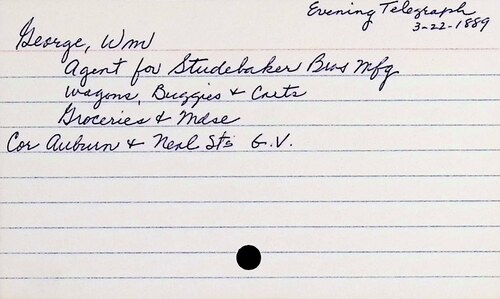 Evening Telegraph
3-22-1889
George, Wm
Agent for Studebaker Bros Mfg
Wagons, Buggies & Carts
Groceries & Mdse
Cor Auburn & Neal Sts G.V.